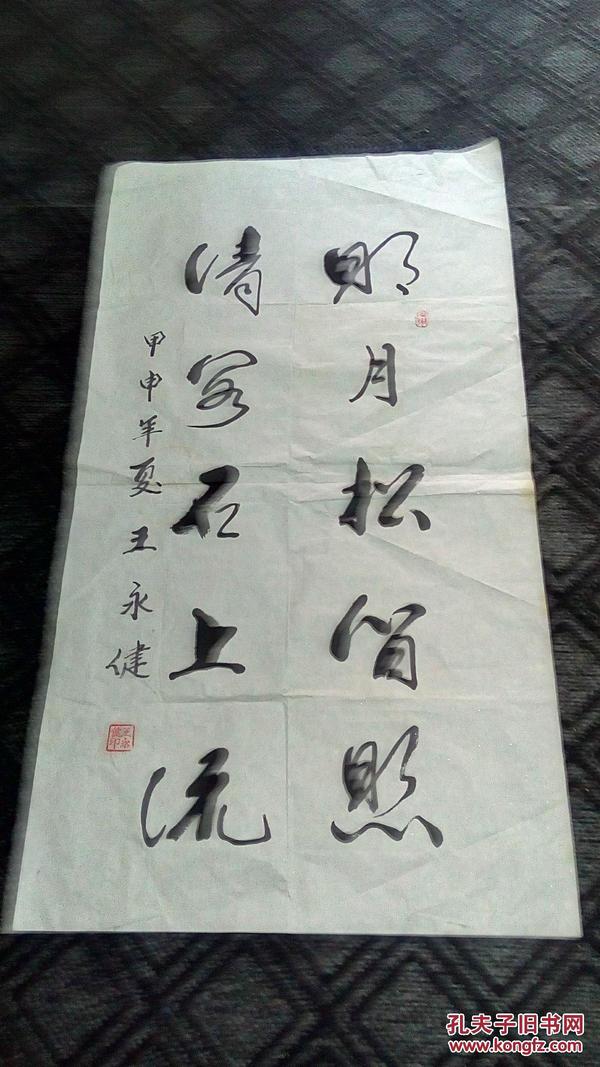 明月松间照
清泉石上流
甲申年夏王永健
王永健印
孔夫子旧书网
www.kongfz.com